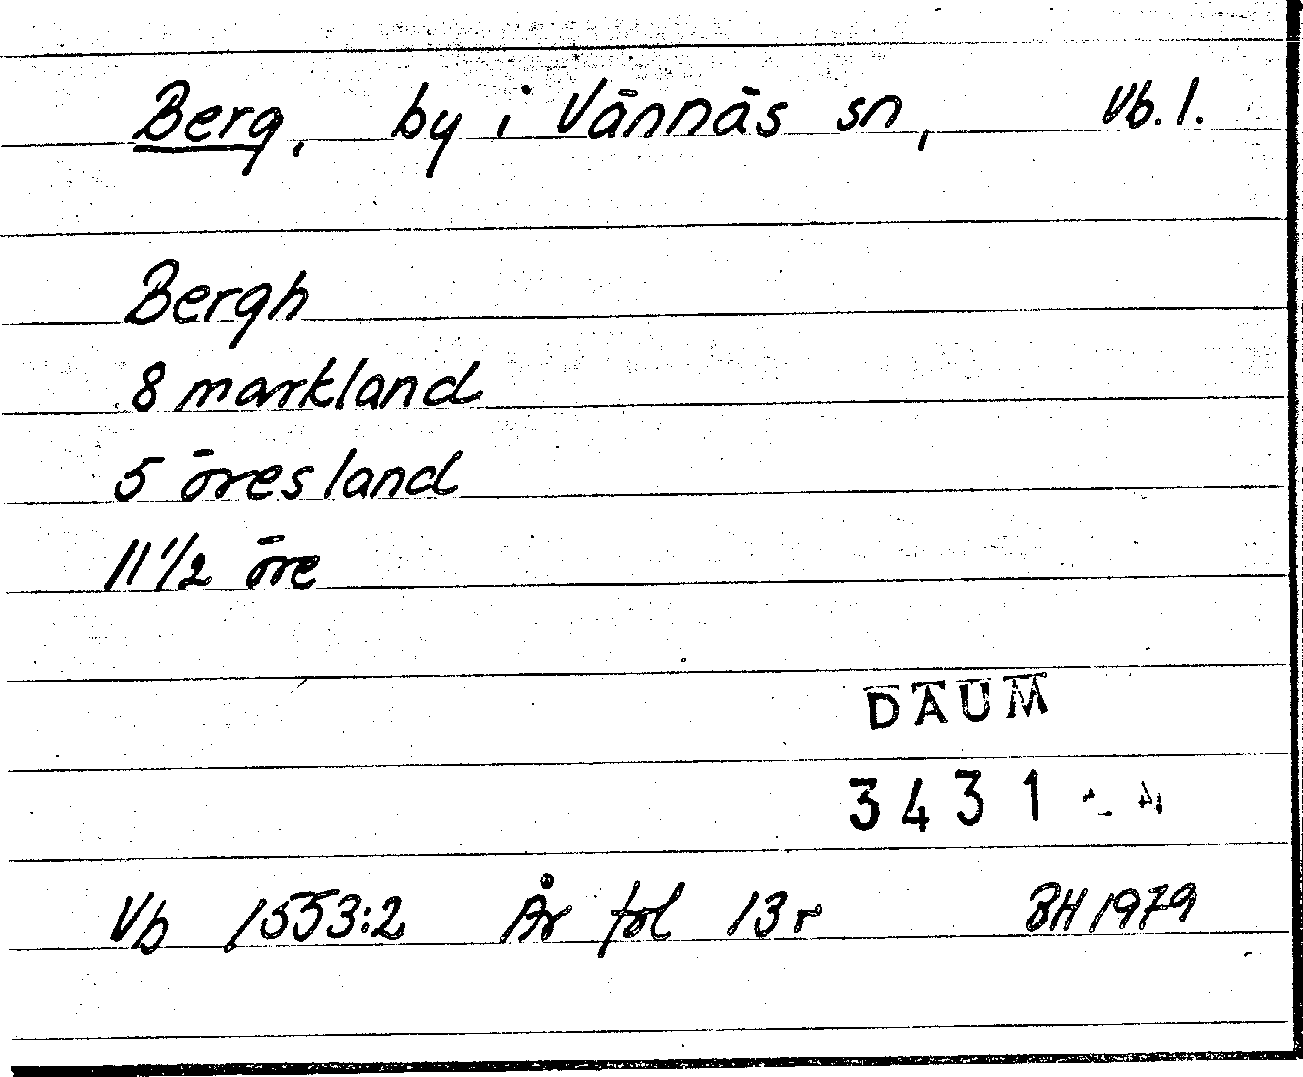 Berg, by i Vännäs sn, Vb. l.
Bergh
8 markland
5 öresland
11 1/2 öre
DAUM
3431
Vb 1553:2 År fol 13 r BH 1979